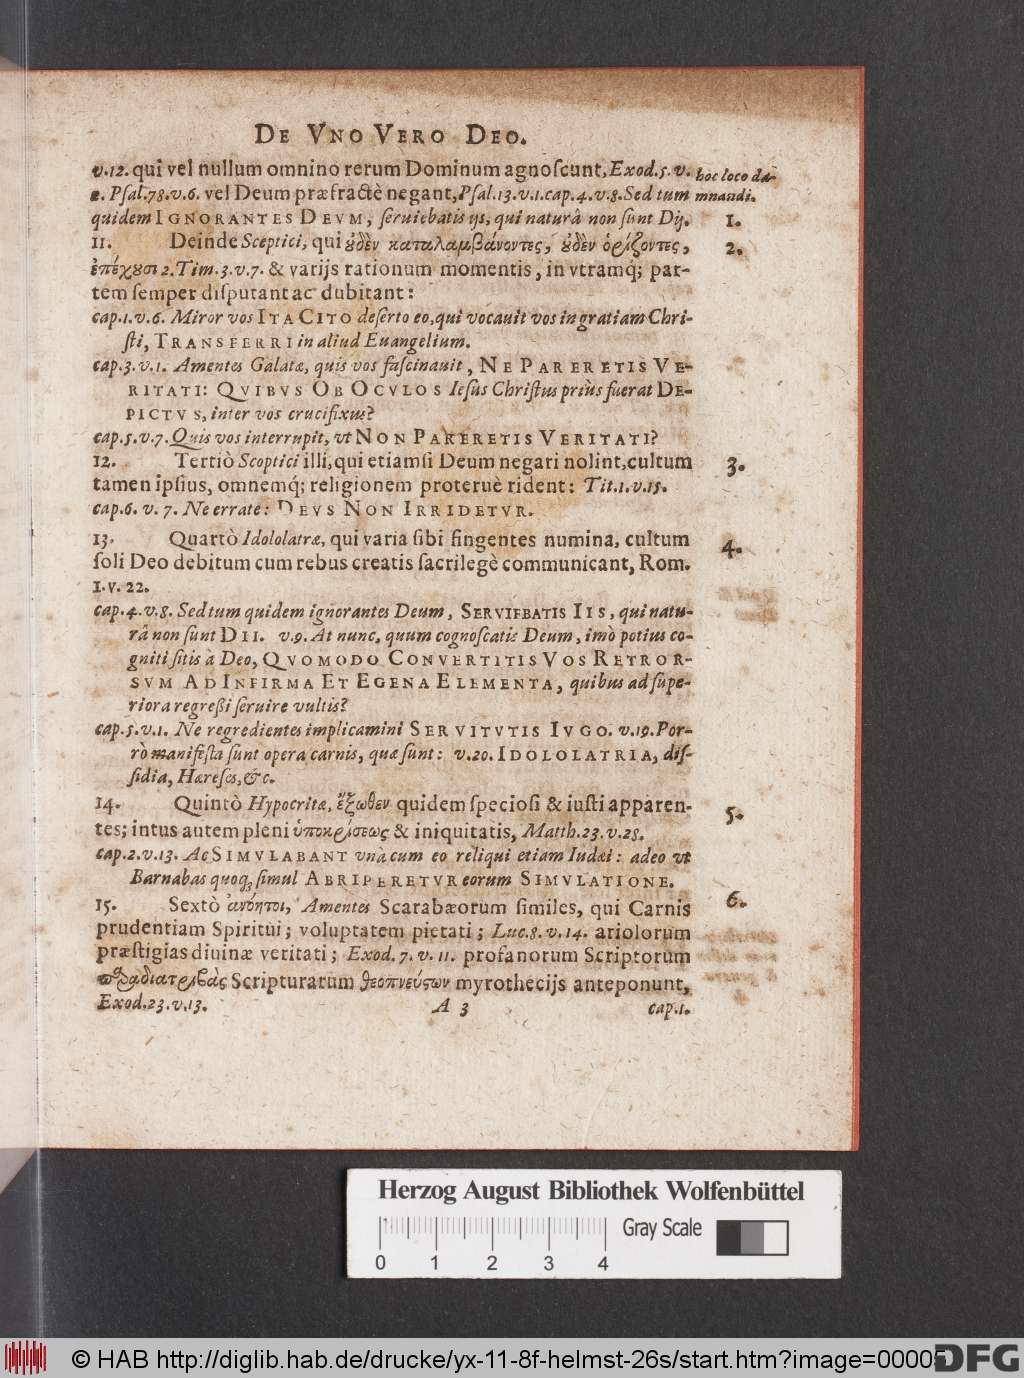 DE VNO VERO DEO.
v.12. qui vel nullum omnino rerum Dominum agnoſcunt, Exod.5.v. hoc loco da-
2. Pſal.78.v.6. vel Deum præfractè negant, Pſal.13.v.1.cap.4.v.8. Sed tum mnandi.
quidem IGNORANTES DEVM, ſeruiebatis ijs, qui naturâ non ſunt Dij. 1.
11. Deinde Sceptici, qui ȣ̓δὲν καταλαμβάνοντες, ȣ̓δὲν ὁρίζοντες, 2.
ἐπέχȣσι 2.Tim.3.v.7. & varijs rationum momentis, in vtramq; par-
tem ſemper diſputant ac dubitant:
cap.1.v.6. Miror vos ITA CITO deſerto eo, qui vocauit vos in gratiam Chri-
ſti, TRANSFERRI in aliud Euangelium.
cap.3.v.1. Amentes Galatæ, quis vos faſcinauit, NE PARERETIS VE-
RITATI: QVIBVS OB OCVLOS Ieſus Chriſtus priùs fuerat DE-
PICTVS, inter vos crucifixus?
cap.5.v.7. Quis vos interrupit, vt NON PARERETIS VERITATI?
12. Tertiò Scoptici illi, qui etiamſi Deum negari nolint, cultum 3.
tamen ipſius, omnemq; religionem proteruè rident: Tit.1.v.15.
cap.6. v. 7. Ne errate: DEVS NON IRRIDETVR.
13. Quartò Idololatræ, qui varia ſibi fingentes numina, cultum 4.
ſoli Deo debitum cum rebus creatis ſacrilegè communicant, Rom.
1.v. 22.
cap.4.v.8. Sed tum quidem ignorantes Deum, SERVIEBATIS IIS, qui natu-
râ non ſunt DII. v.9. At nunc, quum cognoſcatis Deum, imò potius co-
gniti ſitis à Deo, QVOMODO CONVERTITIS VOS RETROR-
SVM AD INFIRMA ET EGENA ELEMENTA, quibus ad ſupe-
riora regreßi ſeruire vultis?
cap.5.v.1. Ne regredientes implicamini SERVITVTIS IVGO. v.19. Por-
rò manifeſta ſunt opera carnis, quæ ſunt: v.20. IDOLOLATRIA, diſ-
ſidia, Hæreſes, &c.
14. Quintò Hypocritæ, ἔξωθεν quidem ſpecioſi & iuſti apparen-
tes; intus autem pleni ὑποκρίσεως & iniquitatis, Matth.23.v.28. 5.
cap.2.v.13. Ac SIMVLABANT vna cum eo reliqui etiam Iudæi: adeo vt
Barnabas quoq; ſimul ABRIPERETVR eorum SIMVLATIONE.
15. Sextò ἀνόητοι, Amentes Scarabæorum ſimiles, qui Carnis 6.
prudentiam Spiritui; voluptatem pietati; Luc.8.v.14. ariolorum
præſtigias diuinæ veritati; Exod. 7. v. 11. profanorum Scriptorum
παραδιατριβὰς Scripturarum θεοπνεύςων myrothecijs anteponunt,
Exod.23.v.13. A 3 cap.1.
Herzog August Bibliothek Wolfenbüttel
Gray Scale
0 1 2 3 4
© HAB http://diglib.hab.de/drucke/yx-11-8f-helmst-26s/start.htm?image=00005
DFG